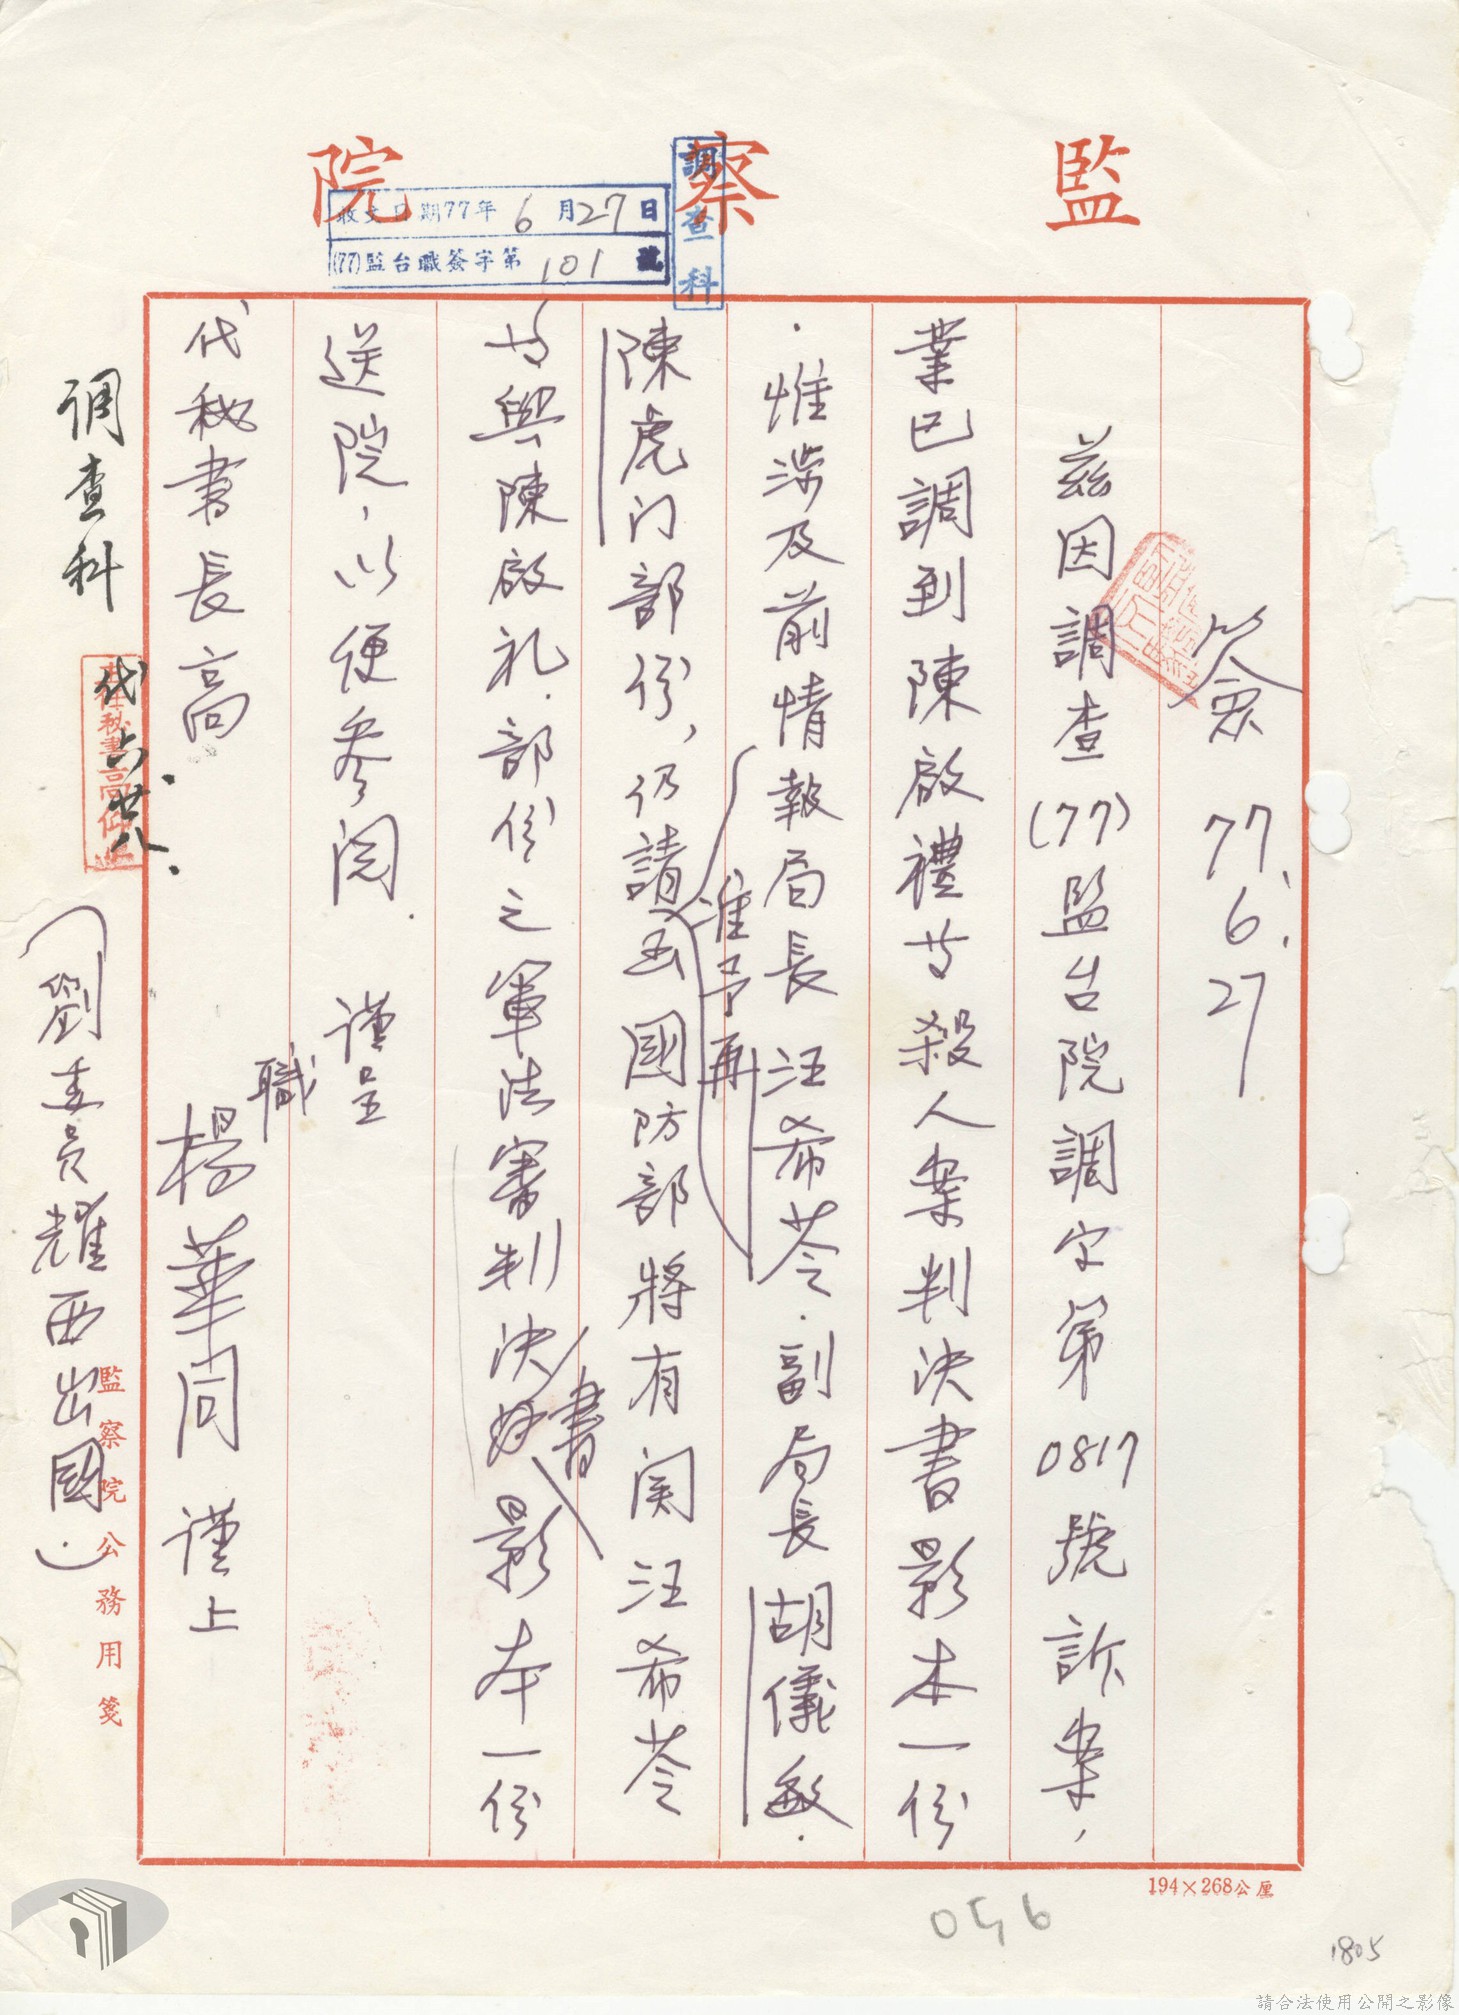 監察院
調查科
收文日期77年6月27日
(77)監台職簽字第101號
簽 77.6.27
茲因調查(77)監台院調字第0817號訴案，
業已調到陳啟禮等殺人案判決書影本一份
．惟涉及前情報局長汪希苓．副局長胡儀敏．
准予再
陳虎门部份，仍請函國防部將有関汪希苓
等與陳啟礼．部份之軍法審判決書影本一份
送院，以便參閱．謹呈
職
代秘書長高
楊華同 謹上
調查科
代 六．廿八．
（劉委員耀西出國．）
監察院公務用箋
194×268公厘
056
1805
請合法使用公開之影像